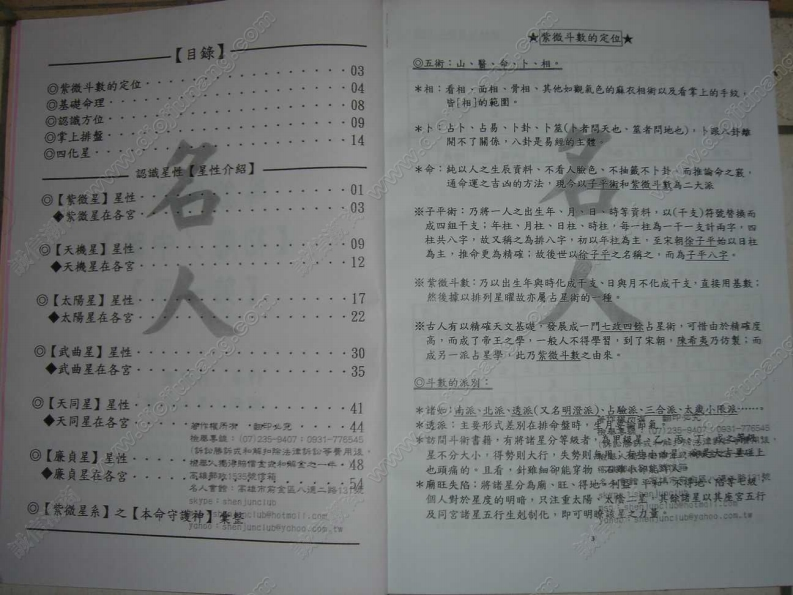 【目錄】
◎紫微斗數的定位 03
◎基礎命理 04
◎認識方位 08
◎掌上排盤 09
◎四化星 14
認識星性【星性介紹】
◎【紫微星】星性 01
◆紫微星在各宮 03
◎【天機星】星性 09
◆天機星在各宮 12
◎【太陽星】星性 17
◆太陽星在各宮 22
◎【武曲星】星性 30
◆武曲星在各宮 35
◎【天同星】星性 41
◆天同星在各宮 44
◎【廉貞星】星性 48
◆廉貞星在各宮 54
◎【紫微星系】之【本命守護神】彙整
名人
著作權所有 翻印必究
檢舉專線:(07)235-9407:0931-776545
skype:shenjunclub@hotmail.com
yahoo:shenjunclub@yahoo.com.tw
★紫微斗數的定位★
◎五術:山、醫、命、卜、相。
*相:看相,面相、骨相、其他如觀氣色的麻衣相術以及看掌上的手紋,
皆[相]的範圍。
*卜:占卜、占易、卜卦、卜筮(卜者問天也,筮者問地也),卜跟八卦離
開不了關係,八卦是易經的主體。
*命:純以人之生辰資料、不看人臉色、不抽籤不卜卦,而推論命之衰,
通命運之吉凶的方法,現今以子平術和紫微斗數為二大派
※子平術:乃將一人之出生年、月、日、時等資料,以(干支)符號替換而
成四組干支;年柱、月柱、日柱、時柱,每一柱為一干一支計兩字,四
柱共八字,故又稱之為排八字,初以年柱為主,至宋朝徐子平始以日柱
為主,推命更為精確;故後世以徐子平之名稱之,而為子平八字。
※紫微斗數:乃以出生年與時化成干支、日與月不化成干支,直接用基數;
然後據以排列星曜故亦屬占星術的一種。
※古人有以精確天文基礎,發展成一門七政四餘占星術,可惜由於精確度
高,而成了帝王之學,一般人不得學習,到了宋朝,陳希夷乃仿製;而
成另一派占星學,此乃紫微斗數之由來。
◎斗數的派別:
*諸如:南派、北派、透派(又名明澄派)、占驗派、三合派、太歲小限派……。
*透派:主要形式差別在排命盤時,生月
*訪間斗術書籍,有將諸星分等級者
星不分大小,得勢則大行,失勢則無
也頭痛的,且看,針雖細卻能穿物
*廟旺失陷:將諸星分為廟、旺、得地、利益、平和、不得地、陷等七級
個人對於星度的明暗,只注重太陽、太陰二主,其餘諸星以其座宮五行
及同宮諸星五行生剋制化,即可明瞭該星之力量。
名人